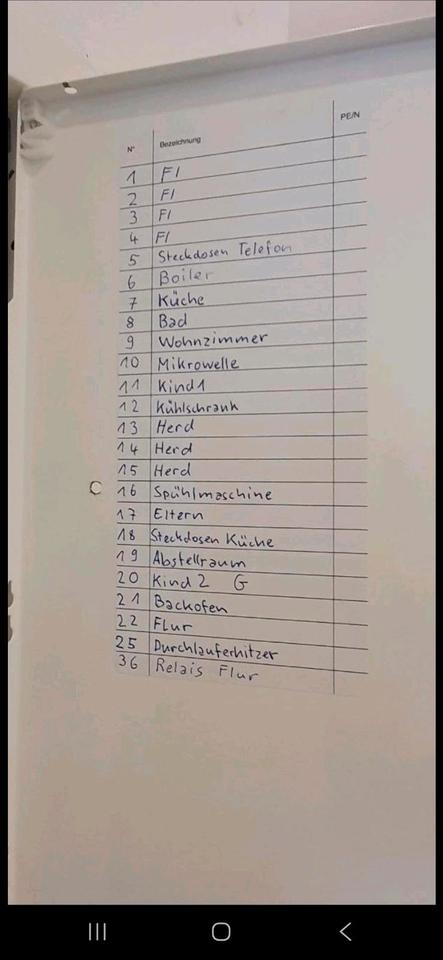 N° Bezeichnung PE/N
1 FI
2 FI
3 FI
4 FI
5 Steckdosen Telefon
6 Boiler
7 Küche
8 Bad
9 Wohnzimmer
10 Mikrowelle
11 Kind1
12 Kühlschrank
13 Herd
14 Herd
15 Herd
16 Spühlmaschine
17 Eltern
18 Steckdosen Küche
19 Abstellraum
20 Kind2 G
21 Backofen
22 Flur
25 Durchlauferhitzer
36 Relais Flur